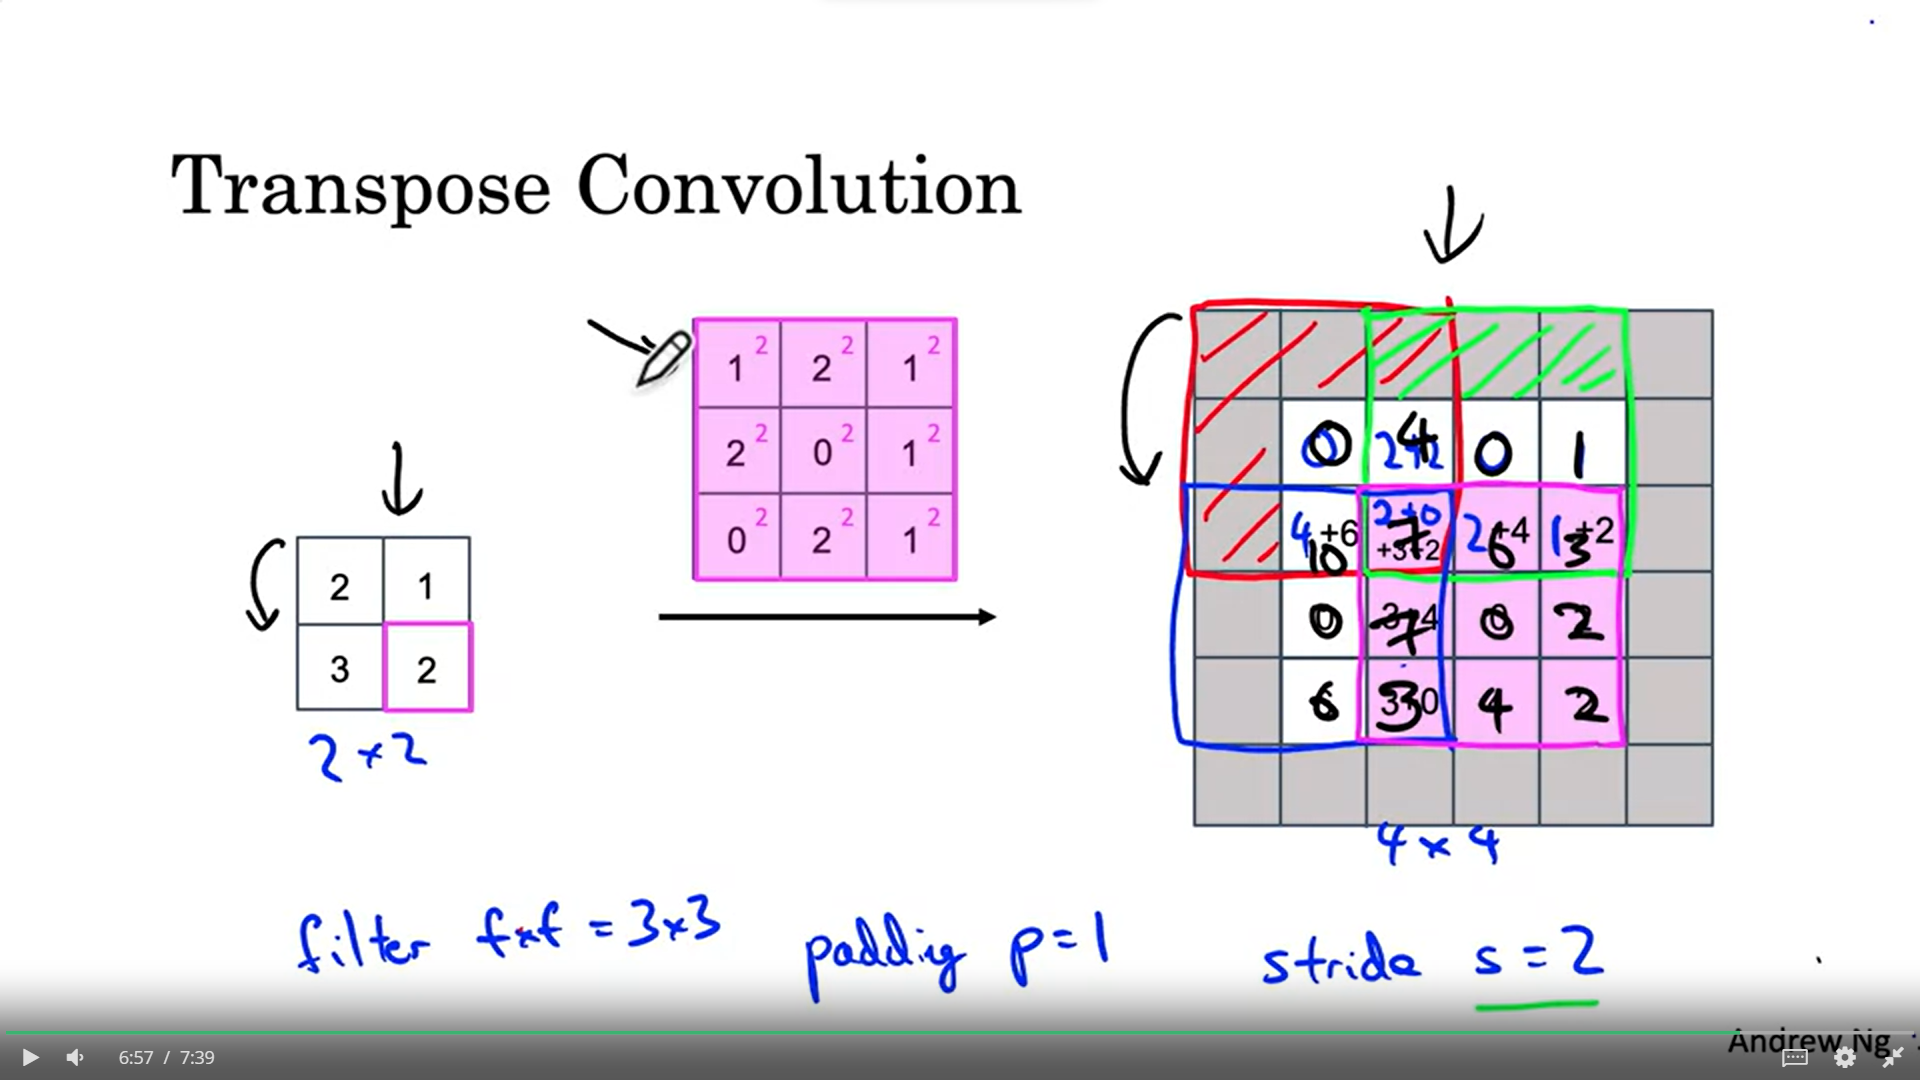 Transpose Convolution
1² 2² 1²
2² 0² 1²
0² 2² 1²
2 1
3 2
2 × 2
0 4 0 1
4+6 10 2+0 +3+2 7 2+4 6 1+2 3
0 7 0 2
6 3 4 2
4 × 4
filter f×f = 3×3 padding p=1 stride s=2
Andrew Ng
6:57 / 7:39